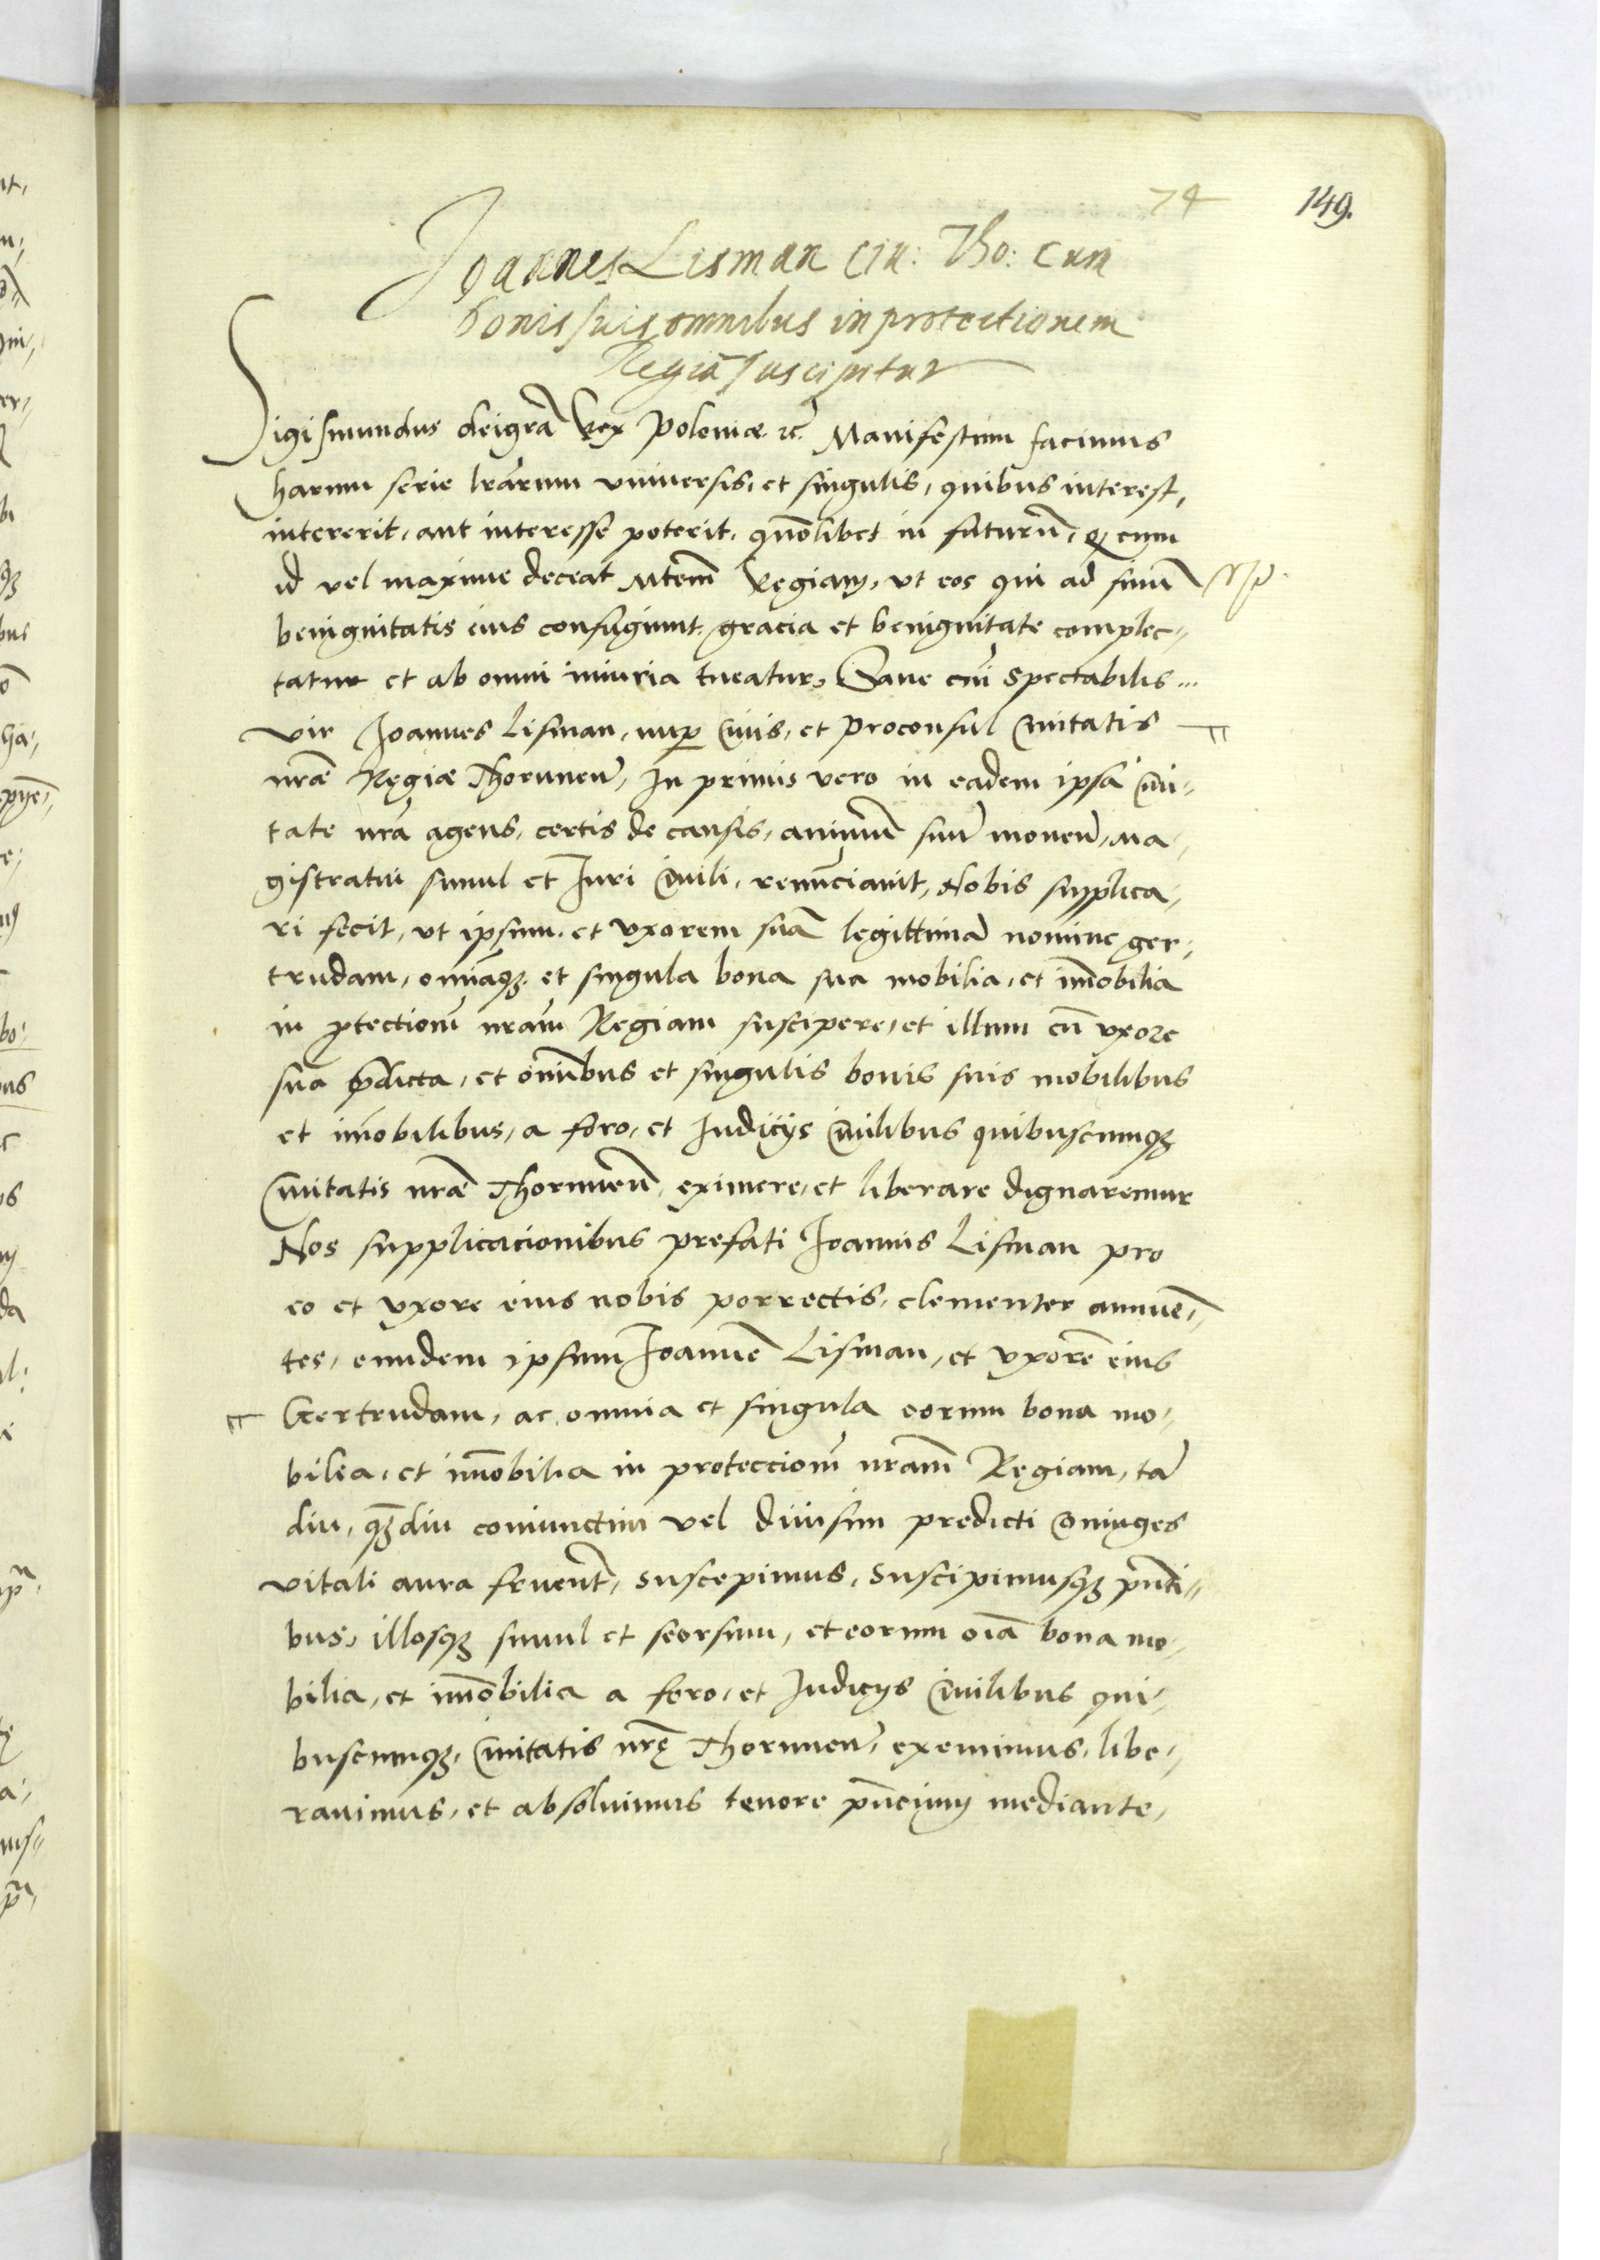 74 149.
Joannes Lisman Ciu: Tho: cum
bonis suis omnibus in protectionem
Regiã suscipitur
Sigismundus deigrã Rex Poloniæ. ꝛc̃. Manifestum facimus
harum serie lr̃arum vniuersis, et singulis, quibus interest,
intererit, aut interesse poterit, quõlibet in futurũ, ꝙ cum
id vel maxime deceat Mtem̃ Regiam, vt eos qui ad sinũ
benignitatis eius confugiunt, gracia et benignitate complec-
tatur et ab omni iniuria tueatur, Sane cũ Spectabilis...
vir Joannes Lisman, nup̱ Ciuis, et Proconsul Ciuitatis
nrãe Regiæ Thorunen̄, In primis vero in eadem ipsa Ciui-
tate nrã agens, certis de causis, animũ suũ mouen̄, ma-
gistratui simul et Iuri Ciuili, renũciauit, Nobis supplica-
ri fecit, vt ipsum, et vxorem suã legittimã nomine ger-
trudam, omniaqꝫ et singula bona sua mobilia, et im̃obilia
in ꝓtectionẽ nrãm Regiam suscipere, et illum cũ vxore
sua p̃dicta, et omĩbus et singulis bonis suis mobilibus
et im̃obilibus, a foro, et Iudicijs Ciuilibus quibuscumqꝫ
Ciuitatis nrãe Thorunen̄, eximere, et liberare dignaremur
Nos supplicacionibus prefati Joannis Lisman pro
eo et vxore eius nobis porrectis, clementer annuẽ-
tes, eundem ipsum Joannẽ Lisman, et vxorẽ eius
Gertrudam, ac omnia et singula eorum bona mo-
bilia, et im̃obilia in proteccionẽ nrãm Regiam, tã
diu, qꝫ̃diu coniunctim vel diuisim predicti Coniuges
vitali aura fruent̃, suscepimus, Suscipimusqꝫ p̃nti-
bus, illosqꝫ simul et seorsim, et eorum oĩa bona mo-
bilia, et im̃obilia a foro, et Iudicijs Ciuilibus qui-
buscumqꝫ, Ciuitatis nrę̃ Thorunen̄, exemimus, libe-
rauimus, et absoluimus tenore p̃ncium mediante,